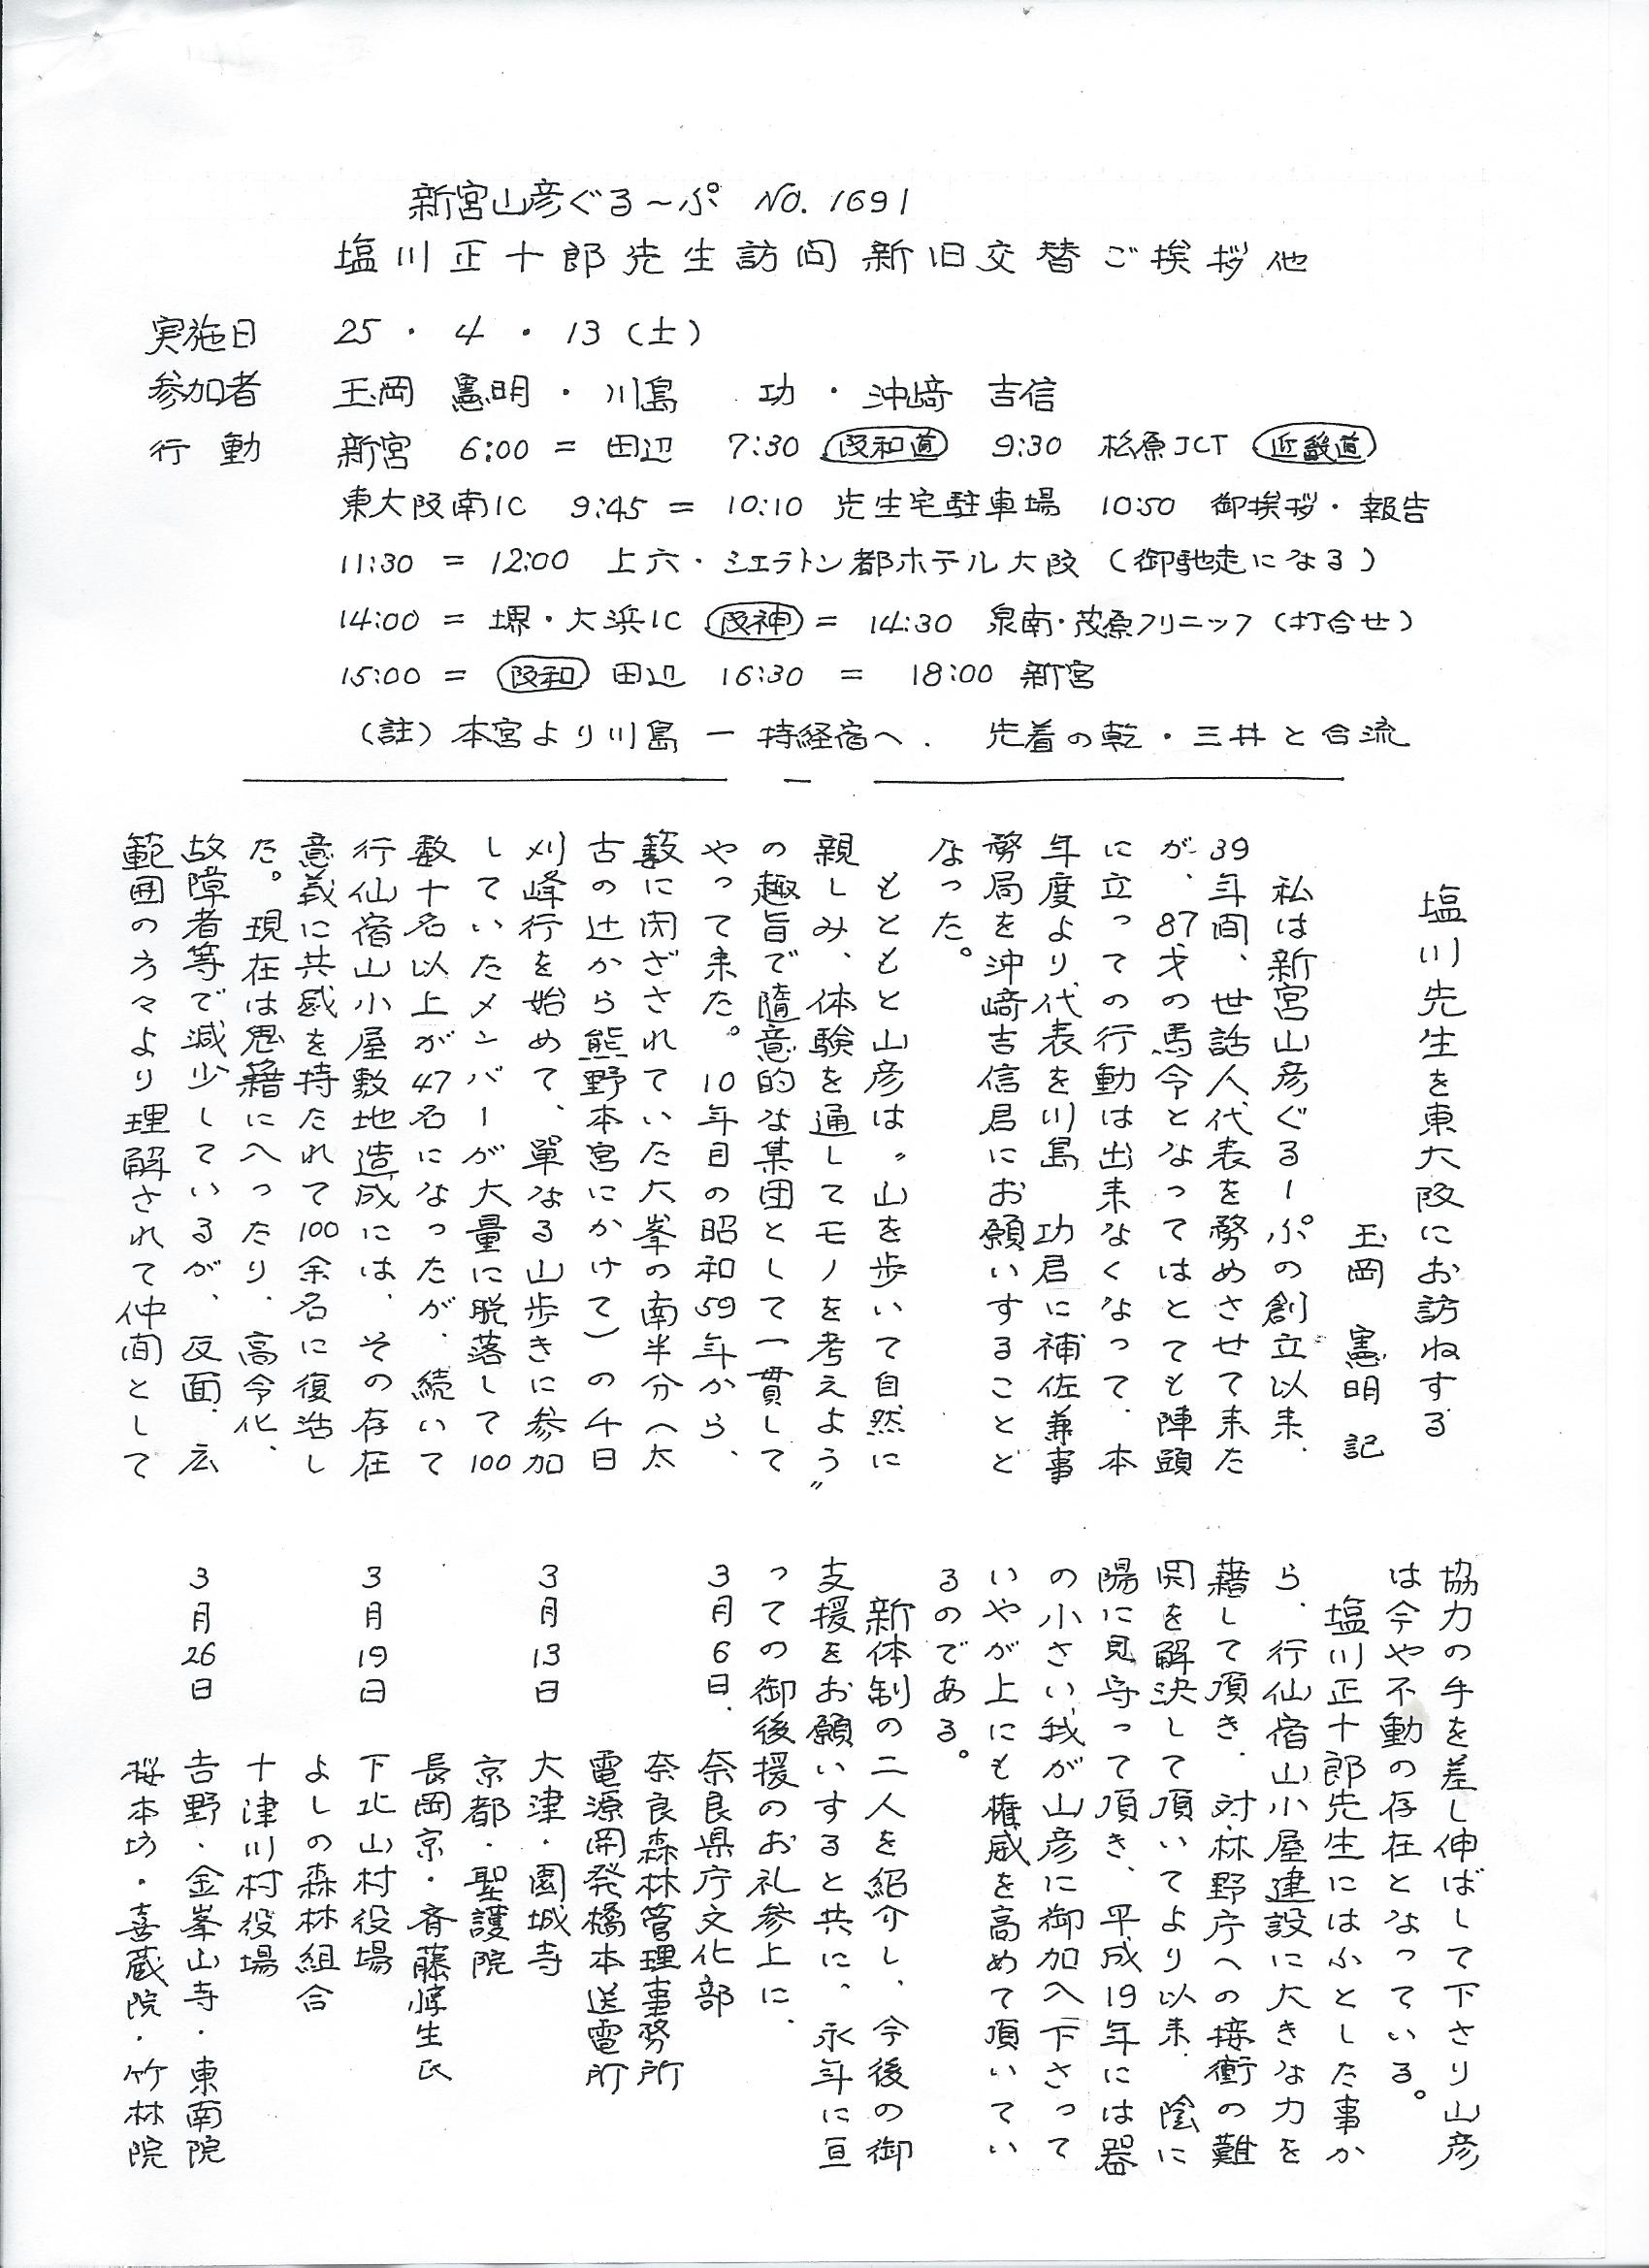 新宮山彦ぐる～ぷ No.1691
塩川正十郎先生訪问 新旧交替ご挨拶他
実施日 25・4・13（土）
参加者 玉岡 憲明・川島 功・沖﨑 吉信
行動 新宮 6:00 = 田辺 7:30 阪和道 9:30 松原JCT 近畿道
東大阪南IC 9:45 = 10:10 先生宅駐車場 10:50 御挨拶・報告
11:30 = 12:00 上六・シェラトン都ホテル大阪（御馳走になる）
14:00 = 堺・大浜IC 阪神 = 14:30 泉南・茂原クリニック（打合せ）
15:00 = 阪和 田辺 16:30 = 18:00 新宮
（註）本宮より川島ー持経宿へ． 先着の乾・三井と合流
塩川先生を東大阪にお訪ねする
玉岡 憲明 記
私は新宮山彦ぐるーぷの創立以来、
39年间、世話人代表を務めさせて来た
が、87才の馬令となってはとても陣頭
に立っての行動は出来なくなって、本
年度より代表を川島 功君に補佐兼事
務局を沖﨑吉信君にお願いすることと
なった。
もともと山彦は〝山を歩いて自然に
親しみ、体験を通してモノを考えよう〟
の趣旨で隨意的な集団として一貫して
やって来た。10年目の昭和59年から、
藪に闭ざされていた大峯の南半分（太
古の辻から熊野本宮にかけて）の千日
刈峰行を始めて、單なる山歩きに参加
していたメンバーが大量に脱落して100
数十名以上が47名になったが、続いて
行仙宿山小屋敷地造成には、その存在
意義に共感を持たれて100余名に復活し
た。現在は鬼籍に入ったり、高令化、
故障者等で減少しているが、反面、広
範囲の方々より理解されて仲间として
協力の手を差し伸ばして下さり山彦
は今や不動の存在となっている。
塩川正十郎先生にはふとした事か
ら、行仙宿山小屋建設に大きな力を
藉して頂き、対林野庁への接衝の難
関を解決して頂いてより以来、陰に
陽に見守って頂き、平成19年には器
の小さい我が山彦に御加入下さって
いやが上にも権威を高めて頂いてい
るのである。
新体制の二人を紹介し、今後の御
支援をお願いすると共に、永年に亘
っての御後援のお礼参上に、
3月6日． 奈良県庁文化部
奈良森林管理事務所
電源开発橋本送電所
3月13日 大津・園城寺
京都・聖護院
長岡京・斉藤惇生氏
3月19日 下北山村役場
よしの森林組合
十津川村役場
3月26日 吉野・金峯山寺・東南院
桜本坊・喜蔵院・竹林院